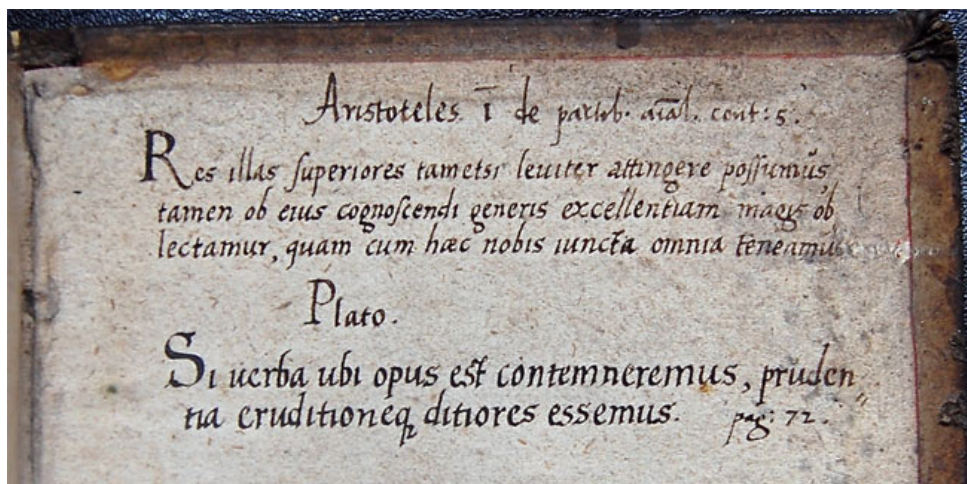 Aristoteles ī de partib. aīal. cont: 5.
Res illas superiores tametsi leuiter attingere possumus
tamen ob eius cognoscendi generis excellentiam magis ob
lectamur, quam cum hæc nobis iuncta omnia teneamus
Plato.
Si uerba ubi opus est contemneremus, pruden„
tia eruditioneq; ditiores essemus. pag: 72.